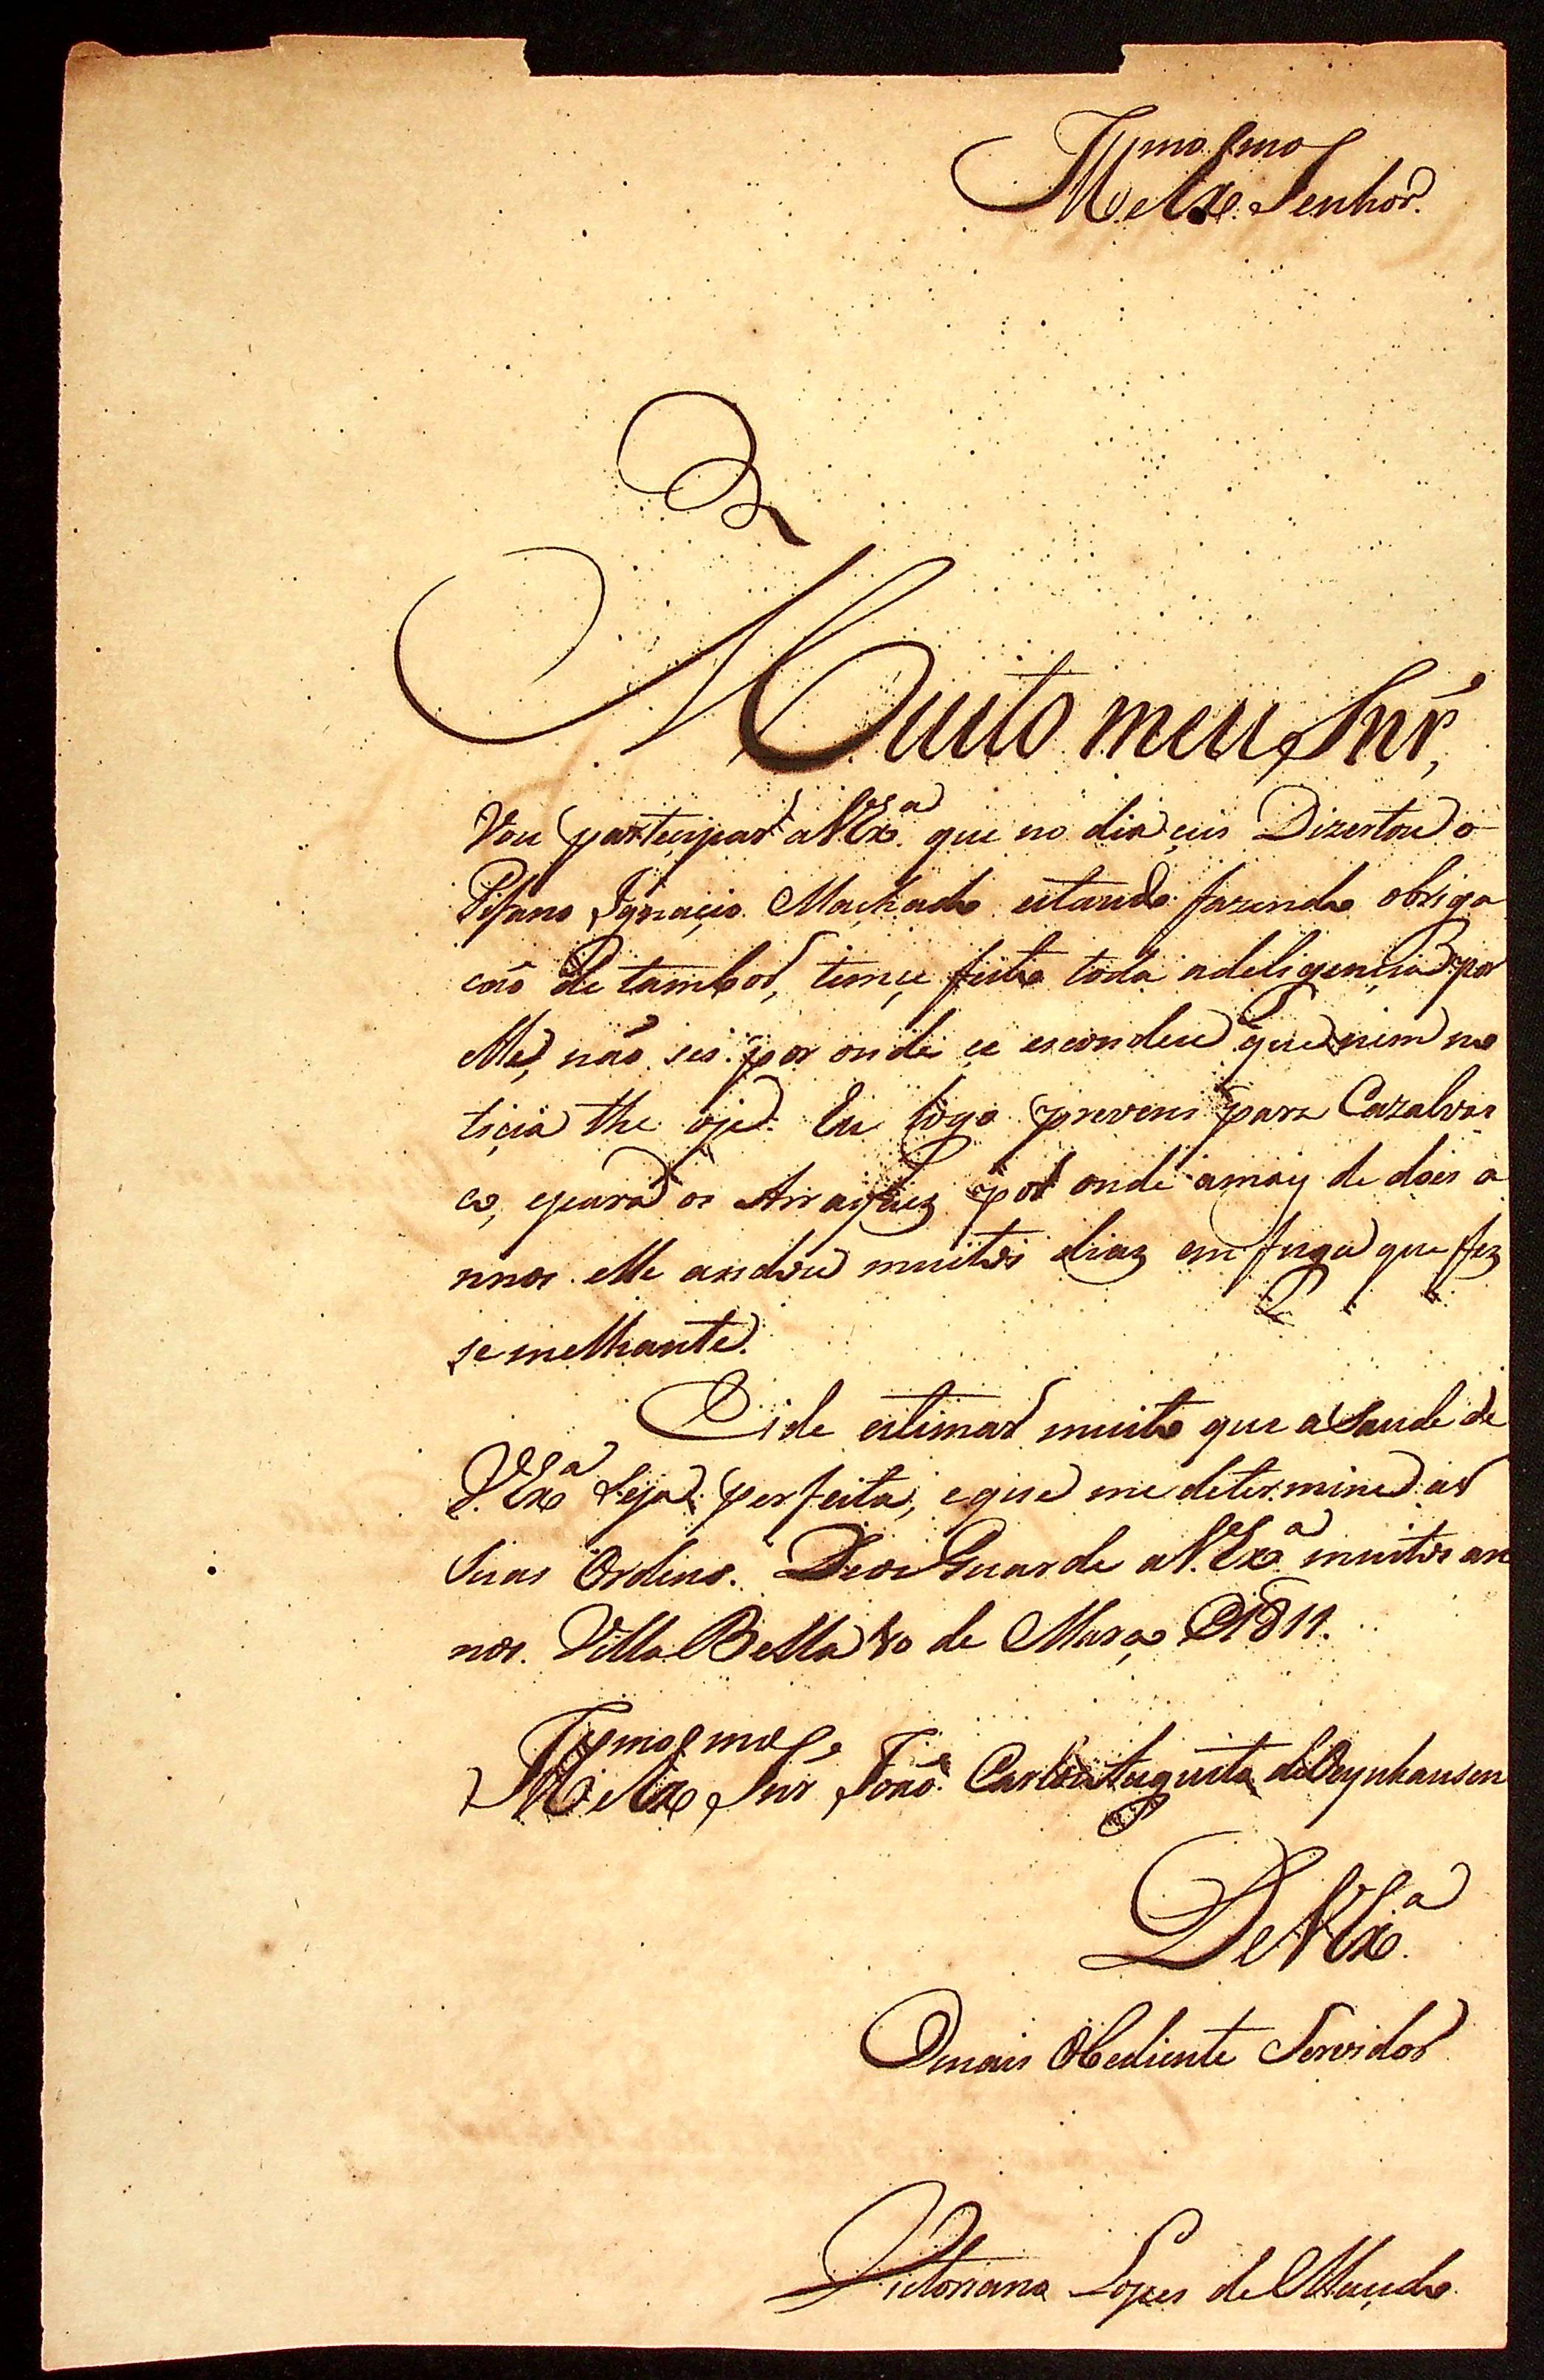 Illmo e Exmo Senhor.
Muito meu Snr',
Vou partecipar a V Exa. que no dia çeis Dizertou o
Pifano Ignaçio Machado estando fazendo obriga
caõ de tambor, temçe feito toda adeligençia por
elle, naõ sei por onde çe escondeu que nem no
tiçia the oje. Eu logo preveni para Cazalvas
co, epara os Arrayaez por onde amaiz de dois a
nnos elle andou muitos diaz em fuga que fez
semelhante.
Eide estimar muito que a Saude de
V. Exa Seja perfeita, eque me determine as
Suas Ordens. Deos Guarde a V. Exa muitos an
nos. Villa Bella 10 de Março D1811.
Illmo e Exmo Snr Joaõ Carlos Augusto de Oeynhausen
De V Exa.
Omais Obediente Servidor
Victoriano Lopes de Maçedo